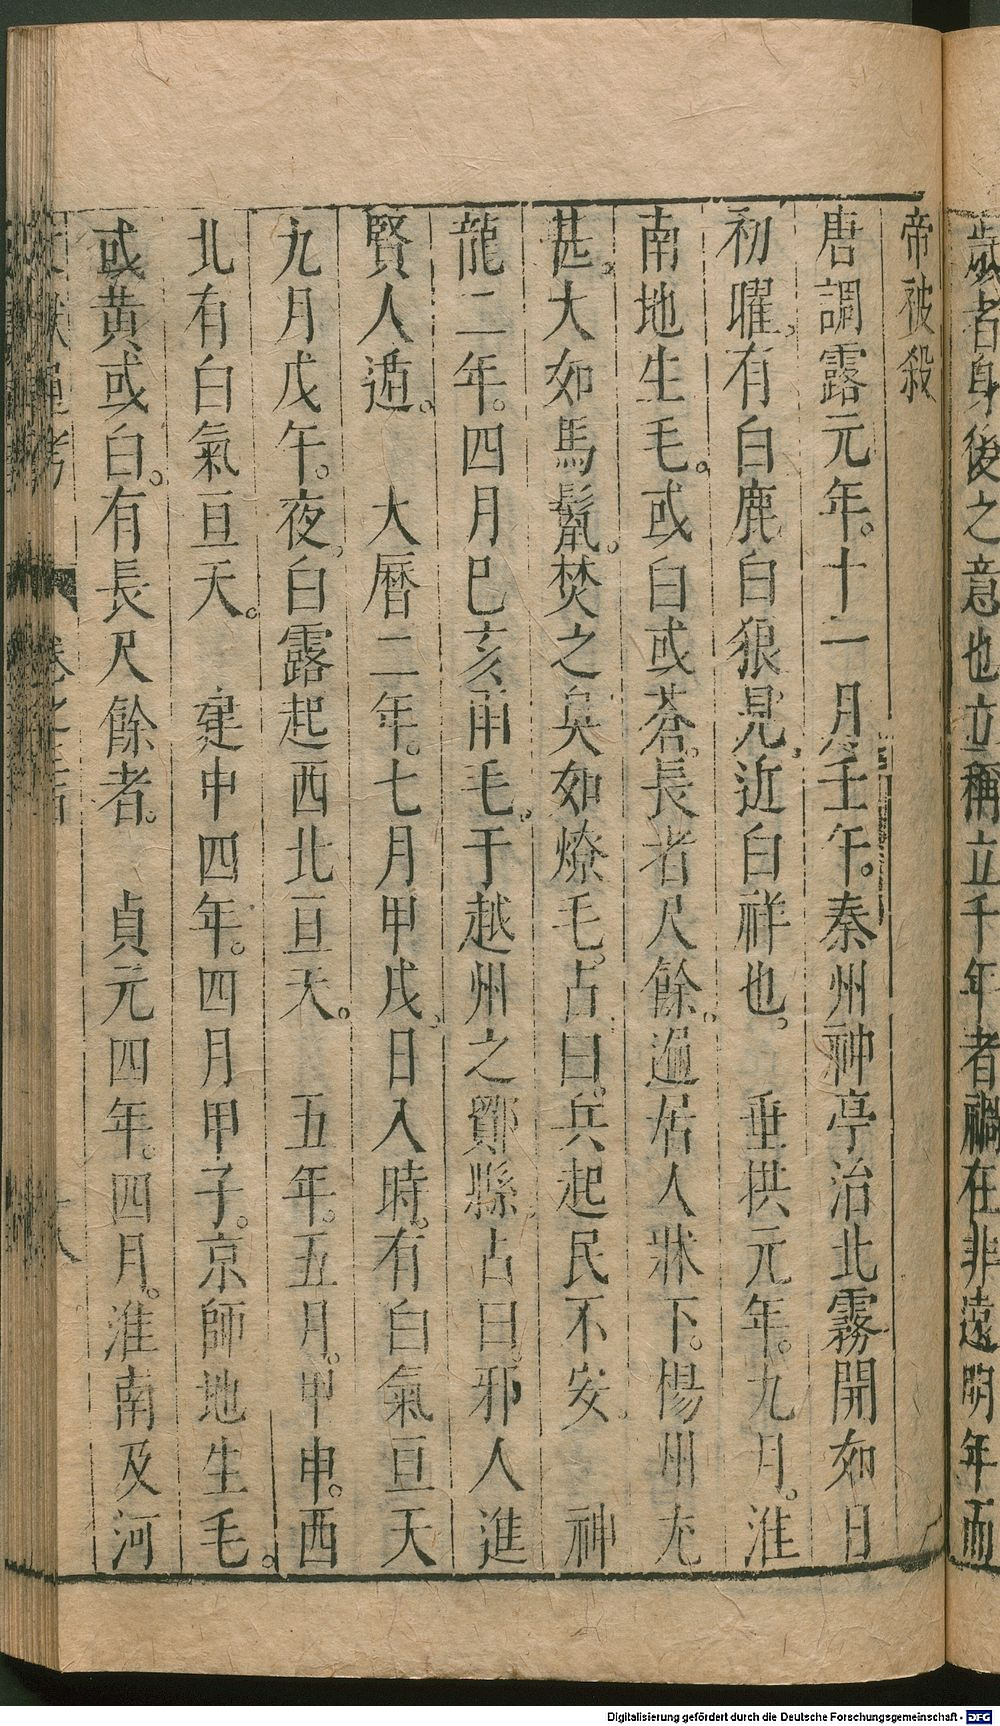 歲者身後之意也立稱立千年者禍在非遠明年而
帝被殺
唐調露元年。十一月壬午。秦州神亭治北霧開如日
初曜，有白鹿白狼見，近白祥也。　垂拱元年。九月。淮
南地生毛。或白或蒼。長者尺餘。遍居人牀下。楊州尤
甚。大如馬鬣。焚之臭如燎毛。占曰。兵起民不安　神
龍二年。四月巳亥雨毛。于越州之鄮縣占曰。邪人進
賢人遁。　大曆二年。七月甲戌日入時。有白氣亘天
九月戊午。夜。白霧起西北亘天。　五年。五月。甲申。西
北有白氣亘天。　建中四年。四月甲子。京師地生毛。
或黄或白。有長尺餘者。　貞元四年。四月。淮南及河
卷之